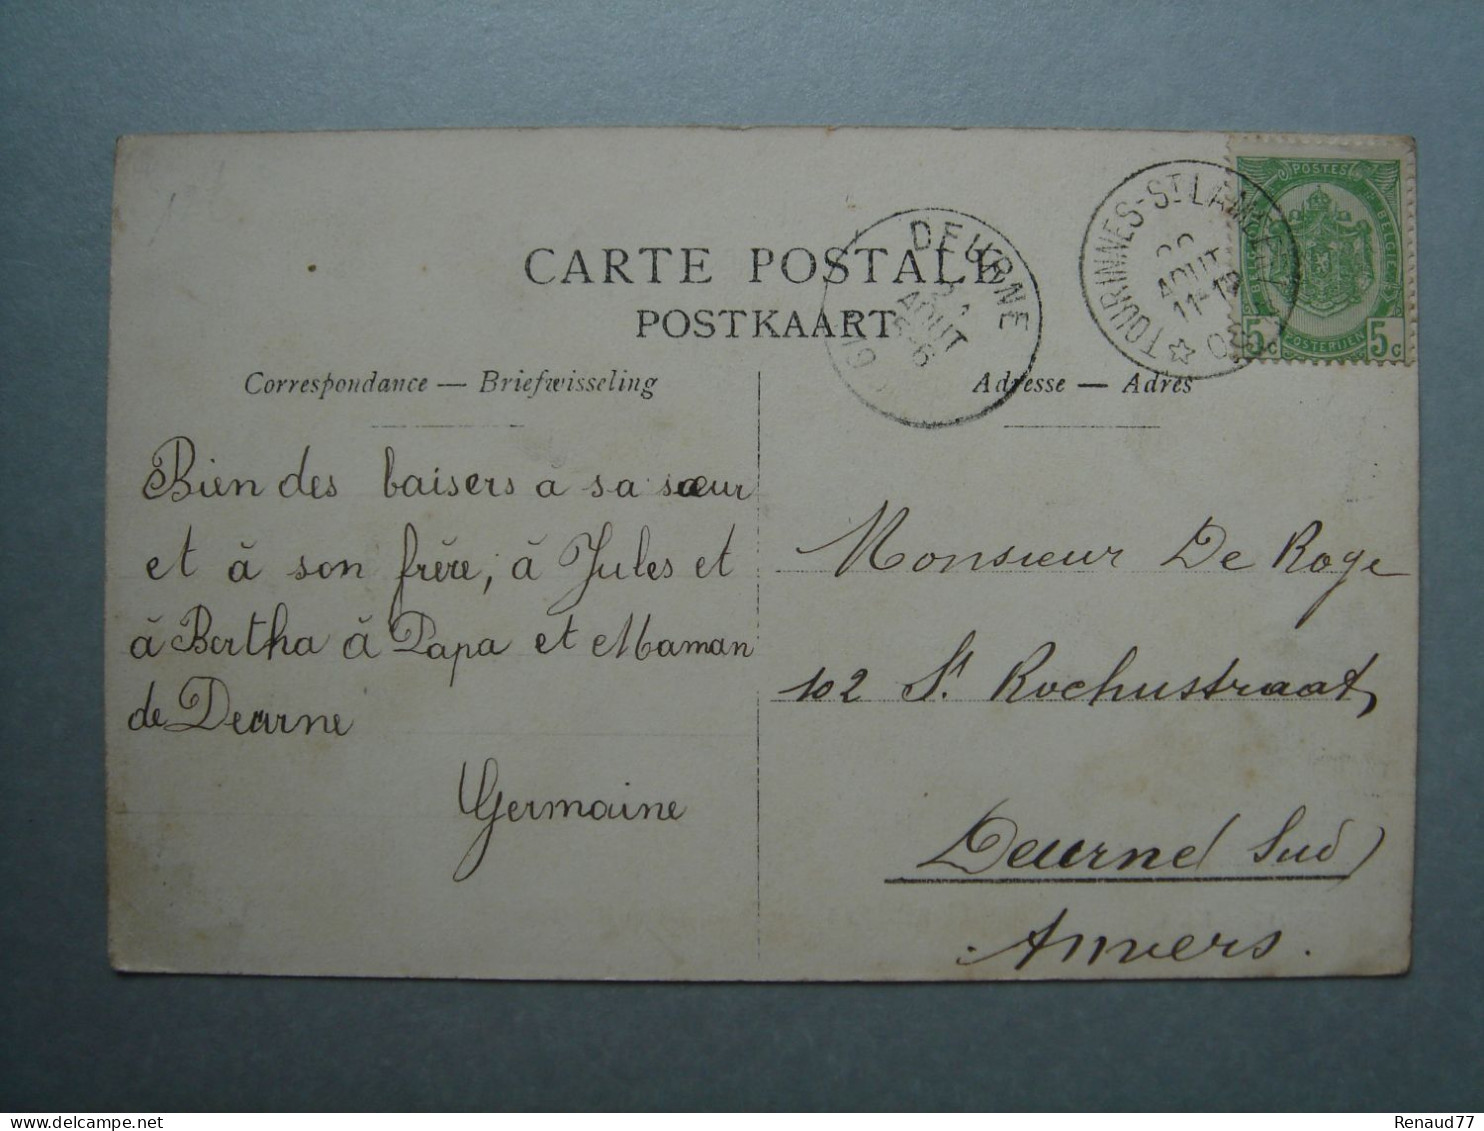 CARTE POSTALE
POSTKAART
Correspondance — Briefwisseling
Adresse — Adres
TOURINNES-ST LAMBERT
AOUT
DEURNE
21
AOUT
5-6
POSTES
POSTERIJEN
5c 5c
Bien des baisers a sa sœur
et à son frère, à Jules et
à Bertha à Papa et Maman
de Deurne
Germaine
Monsieur De Roge
102 St. Rochustraat,
Deurne (Sud)
Anvers.
Renaud77